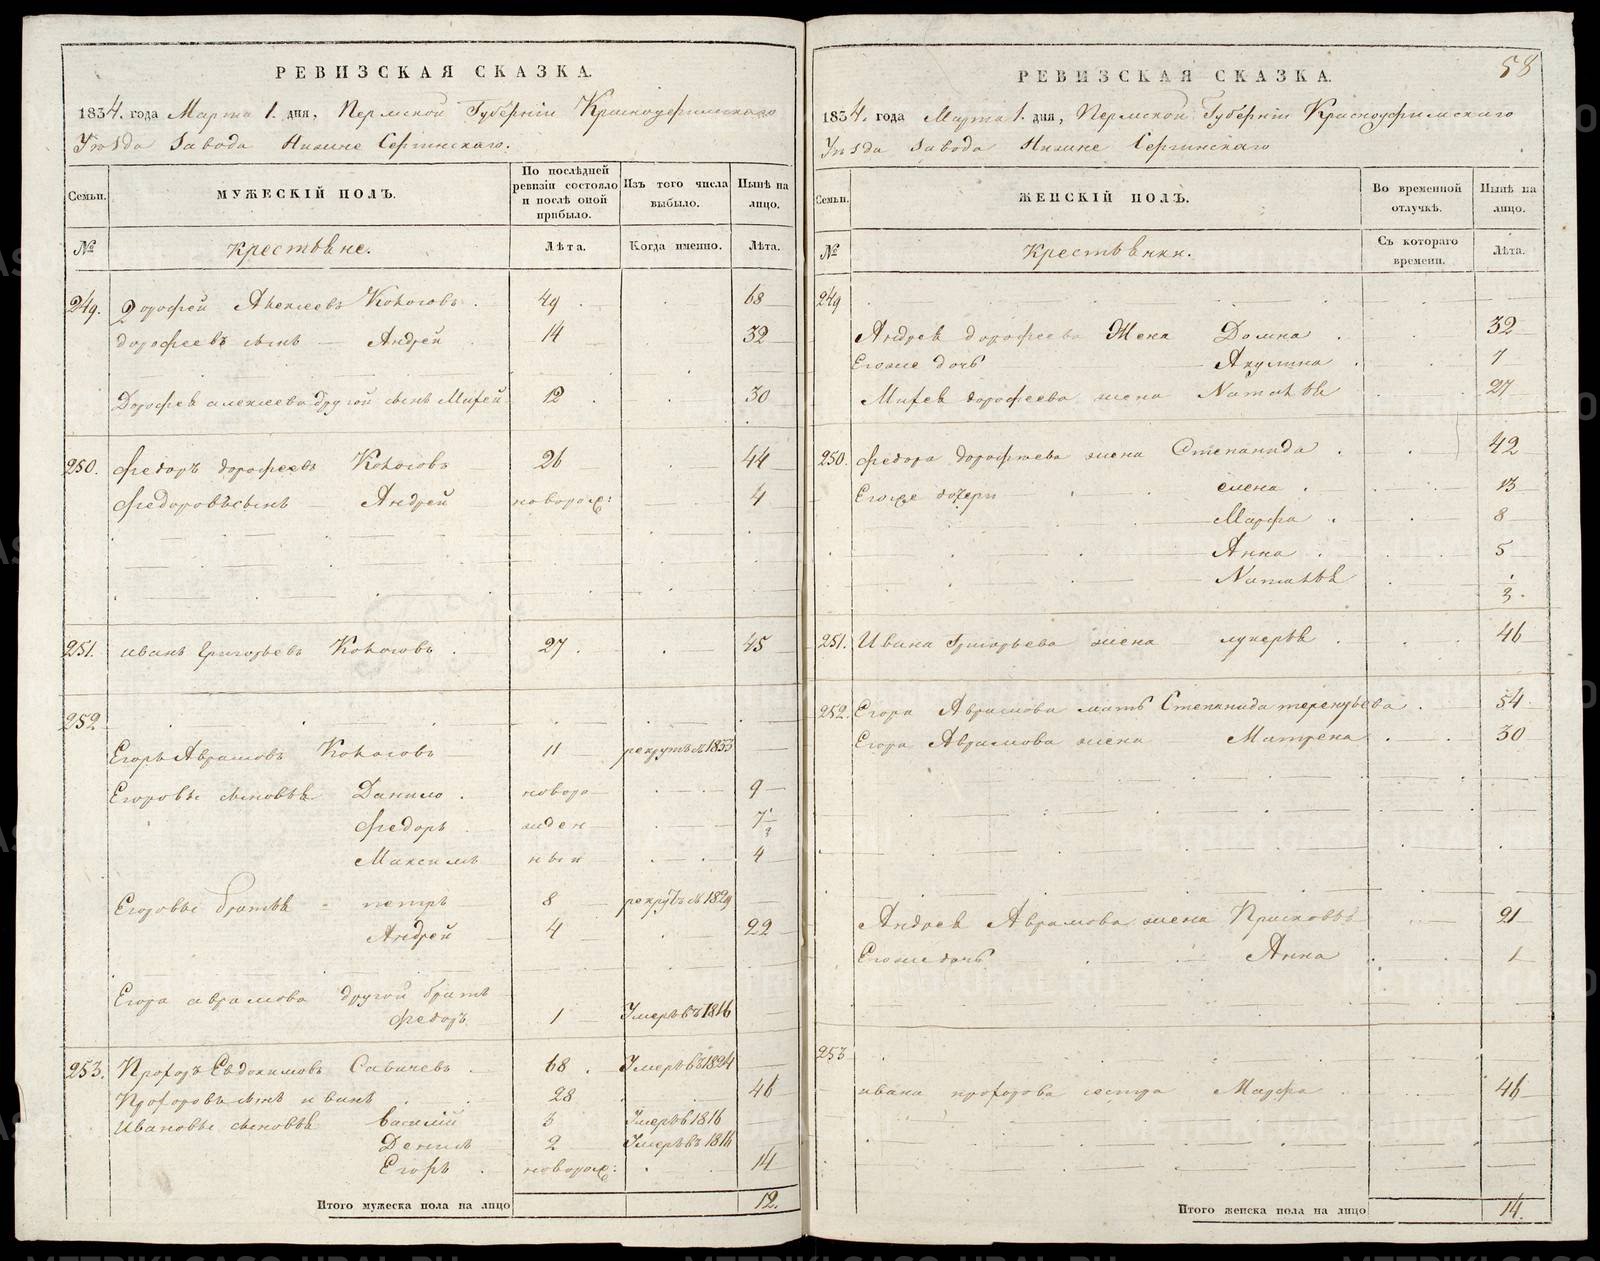 РЕВИЗСКАЯ СКАЗКА.
1834. года Марта 1. дня, Пермской Губернiи Красноуфимскаго
Уѣзда Завода Нижне Сергинскаго.
Семьи. МУЖЕСКIЙ ПОЛЪ. По послѣдней ревизiи состояло и послѣ оной прибыло. Изъ того числа выбыло. Нынѣ на лицо.
№ Крестьяне. Лѣта. Когда именно. Лѣта.
249. Дорофей Алексеевъ 49 68
дорофеевъ сынъ Андрей 14 32
Дорофея алексеева другой сынъ 12 30
250. Федоръ дорофеевъ 26 44
Федоровъ сынъ Андрей новорож: 4
251. иванъ григорьевъ 27. 45
252
Егоръ Аврамовъ 11 рекрутъ 1833
Егоровы сыновья Данило. новоро 9
Федоръ жден 7
Максимъ ныи 4
Егоровы братья петръ 8 рекрутъ 1829
Андрей 4 22
Егора аврамова другой братъ
Федоръ 1 Умеръ въ 1816
253. Прохоръ Евдокимовъ Савичевъ 68. Умеръ въ 1824
Прохоровъ сынъ иванъ 28 46
Ивановы сыновья василiй 3 Умеръ 1816
Данила 2 Умеръ въ 1816
Егоръ новорож: 14
Итого мужеска пола на лицо 12.
58
РЕВИЗСКАЯ СКАЗКА.
1834. года Марта 1. дня, Пермской Губернiи Красноуфимскаго
Уѣзда Завода Нижне Сергинскаго
Семьи. ЖЕНСКIЙ ПОЛЪ. Во временной отлучкѣ. Нынѣ на лицо.
№ Крестьянки. Съ котораго времени. Лѣта.
249
Андрея дорофеева Жена Домна 32
Егоже дочь Акулина 7
дорофеева жена Наталья 27
250. Федора дорофеева жена Степанида 42
Егоже дочери елена 13
Марфа 8
Анна 5
Наталья
251. Ивана Григорьева жена лукерья 46
252. Егора Аврамова мать Степанида терентьева 54
Егора Аврамова жена Матрена 30
Андрея Аврамова жена Прасковья 21
Егоже дочь Анна 1
253
ивана прохорова сестра Марфа 46
Итого женска пола на лицо 14.
METRIKI.GASO-URAL.RU